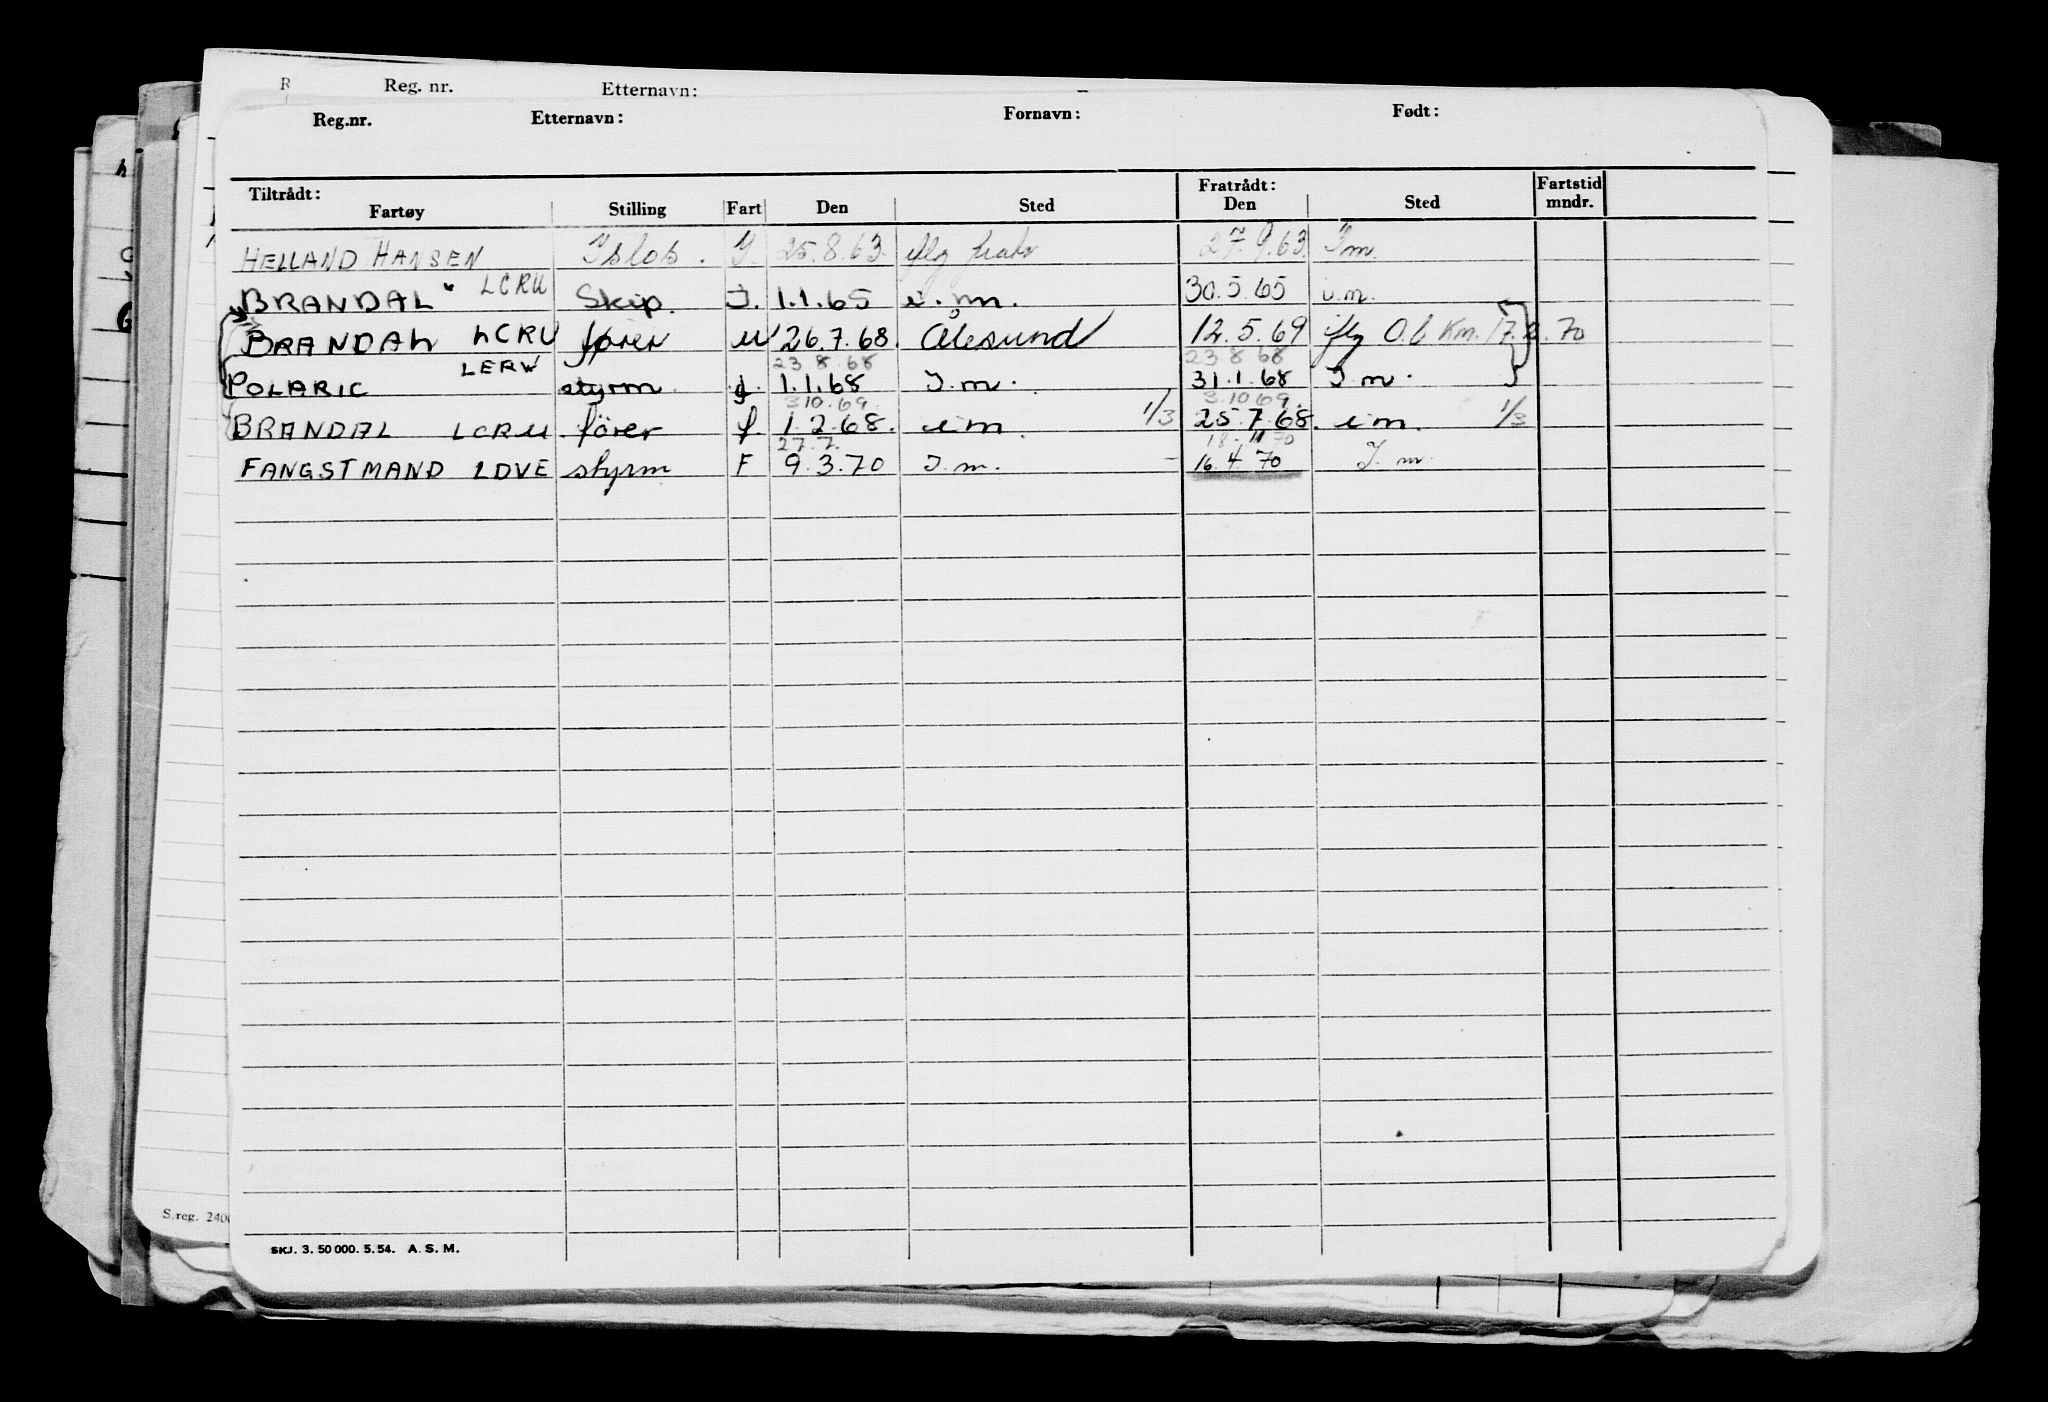 R Reg. nr. Etternavn:
Reg.nr. Etternavn: Fornavn: Født:
Tiltrådt: Fratrådt: Fartstid
Fartøy Stilling Fart Den Sted Den Sted mndr.
HELLAND HANSEN 25.8.63. iflg 27.9.63. I m.
BRANDAL LCRU Skip. I. 1.1.65 i.m. 30.5.65 i.m.
BRANDAL LCRU fører U 26.7.68. Ålesund 12.5.69 iflg O.b Km. 17.2.70
23.8.68 23 8 68
POLARIC LERW styrm f. 1.1.68 I.m. 31.1.68 I.m.
3 10.69. 3.10 69.
BRANDAL LCRU förer f. 1.2.68. i m. 1/3 25.7.68. i m. 1/3
27.7. 18-11 70
FANGSTMAND LDVE styrm F 9.3.70 I.m. 16.4.70 I. m.
S.reg. 240
SKJ. 3. 50 000. 5. 54. A. S. M.